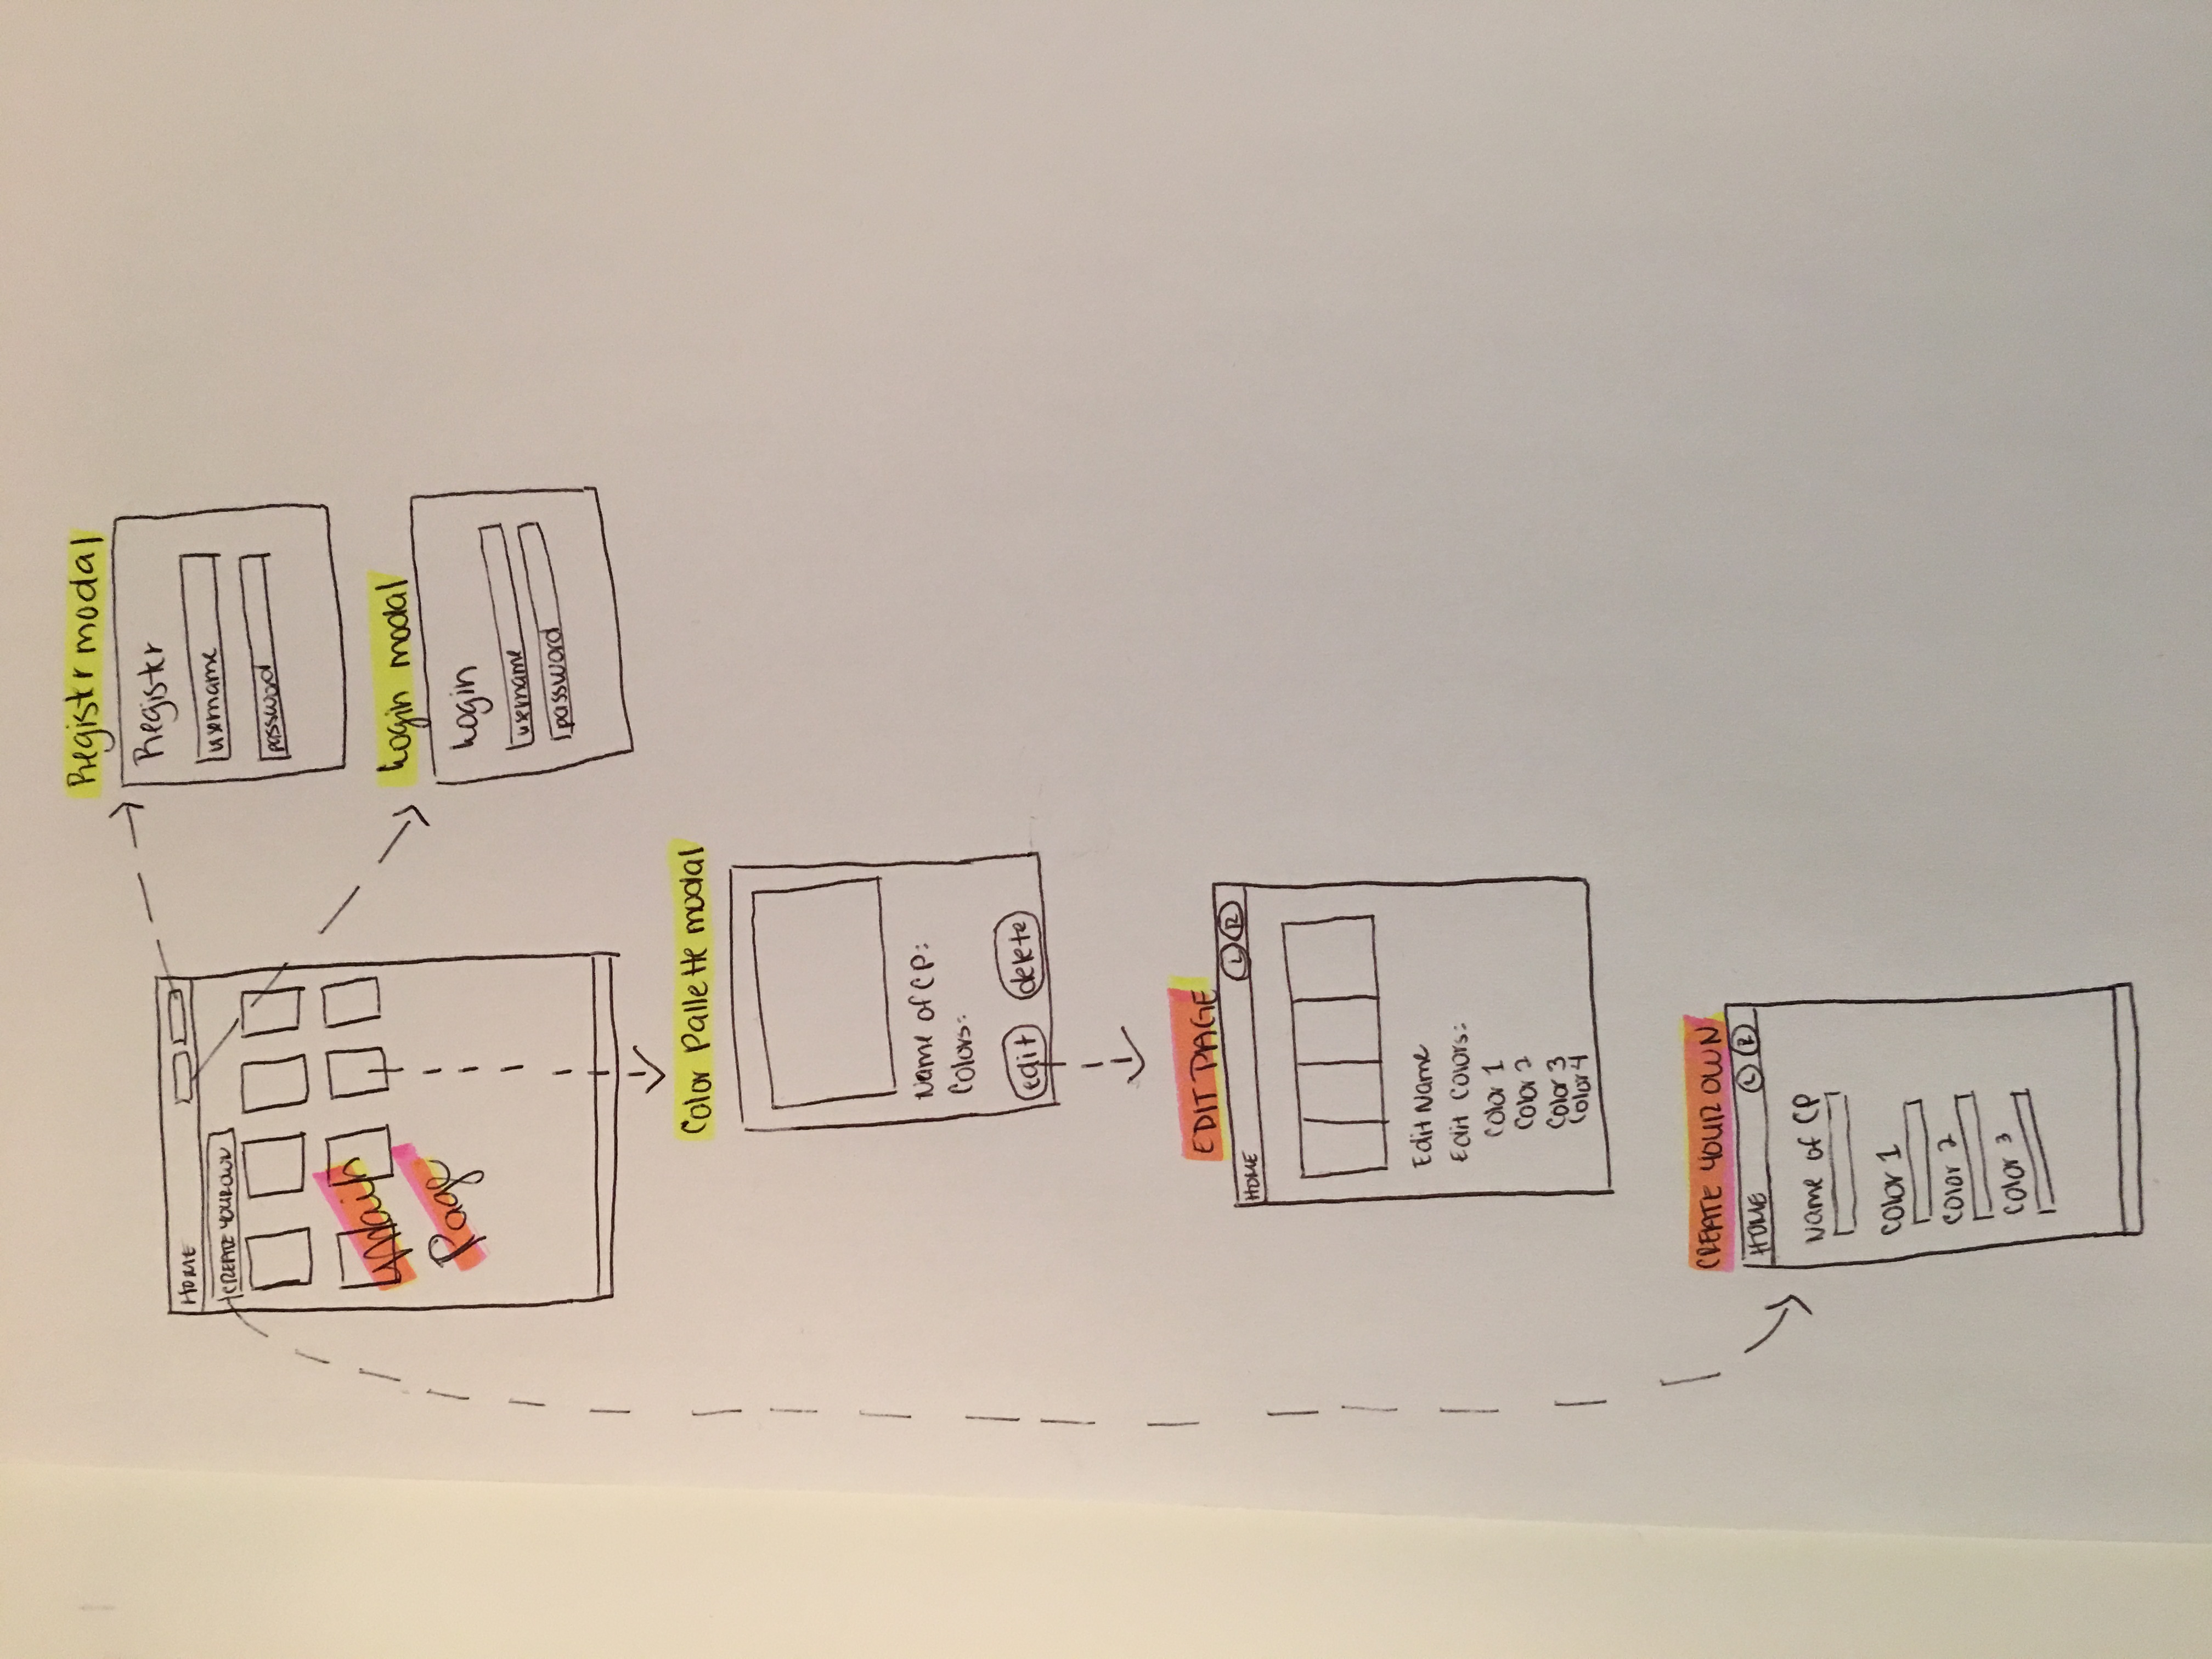 Registr modal
Register
username
password
HOME
CREATE YOUR OWN
Main
Page
Login modal
Login
username
password
Color Pallette modal
Name of CP:
Colors:
edit
delete
EDIT PAGE
HOME
L R
Edit Name
Edit Colors:
Color 1
Color 2
Color 3
Color 4
CREATE YOUR OWN
HOME
L R
Name of CP
Color 1
Color 2
Color 3